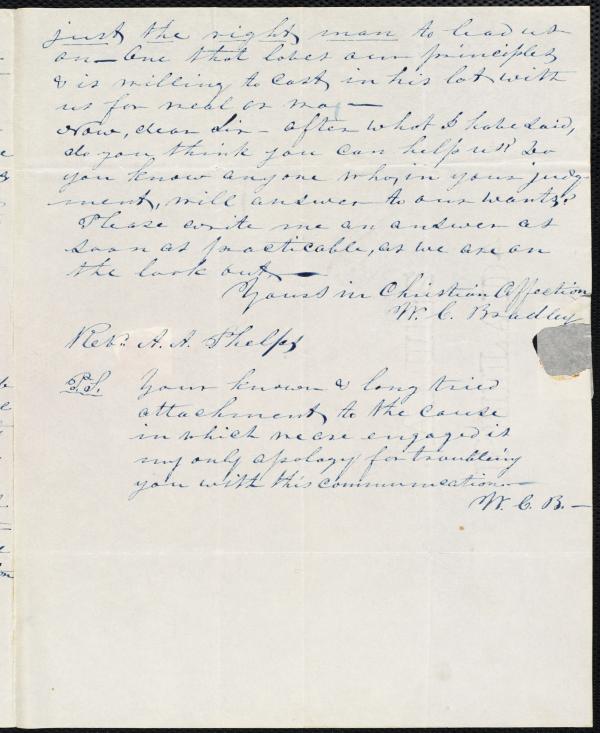 just the right man to lead us
on — One that loves our principles
& is willing to cast in his lot with
us for weal or wo —
Now, dear Sir — after what I have said,
do you think you can help us? Do
you know anyone who, in your judg-
ment, will answer to our wants?
Please write me an answer as
soon as practicable, as we are on
the look out —
Yours in Christian Affection
W. C. Bradley
Rev. A. A. Phelps
P.S. Your known & long tried
attachment to the cause
in which we are engaged is
my only apology for troubling
you with this communication —
W. C. B. —